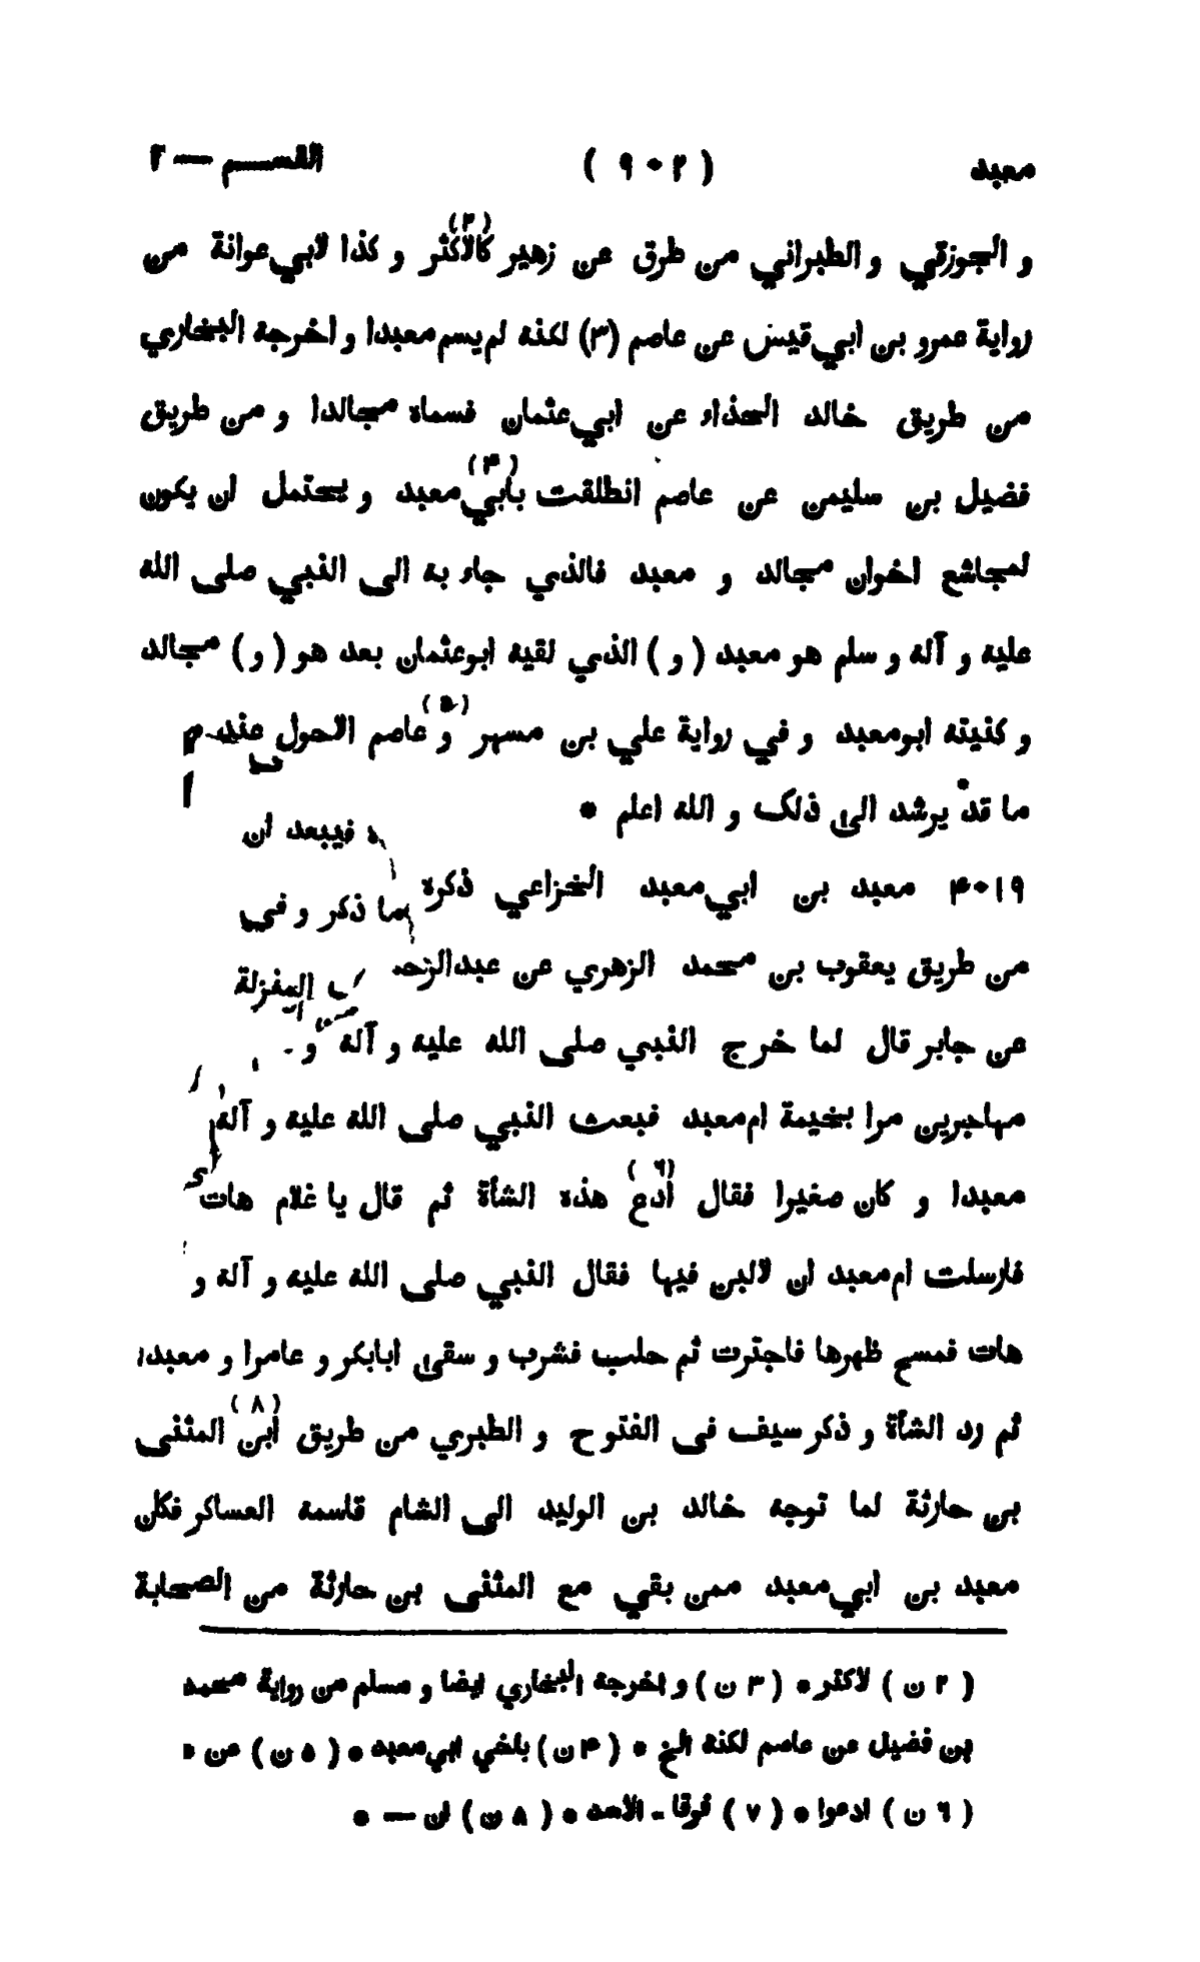 معبد ( ٩٠٢ ) القسم — ٢
و الجوزقي و الطبراني من طرق عن زهير كالاكثر (٢) و كذا لابي عوانة من
رواية عمرو بن ابي قيس عن عاصم (٣) لكنه لم يسم معبدا و اخرجه البخاري
من طريق خالد الحذاء عن ابي عثمان فسماه مجالدا و من طريق
فضيل بن سليمن عن عاصم انطلقت بابي معبد (۴) و يحتمل ان يكون
لمجاشع اخوان مجالد و معبد فالذي جاء به الى النبي صلى الله
عليه و آله و سلم هو معبد ( و ) الذي لقيه ابوعثمان بعد هو ( و ) مجالد
و كنيته ابومعبد و في رواية علي بن مسهر و (۵) عاصم الاحول عند م
ما قد يرشد الى ذلك و الله اعلم *
فيبعد ان
۴٠١٩ معبد بن ابي معبد الخزاعي ذكره
ما ذكر و في
من طريق يعقوب بن محمد الزهري عن عبدالرحـ
المغزلة
عن جابر قال لما خرج النبي صلى الله عليه و آله و
مهاجرين مرا بخيمة ام معبد فبعث النبي صلى الله عليه و آله
معبدا و كان صغيرا فقال ادع (٦) هذه الشأة ثم قال يا غلام هات
فارسلت ام معبد ان لالبن فيها فقال النبي صلى الله عليه و آله و
هات فمسح ظهرها فاجترت ثم حلب فشرب و سقى ابابكر و عامرا و معبدا
ثم رد الشأة و ذكر سيف فى الفتوح و الطبري من طريق ابن (٨) المثنى
بن حارثة لما توجه خالد بن الوليد الى الشام قاسمه العساكر فكان
معبد بن ابي معبد ممن بقي مع المثنى بن حارثة من الصحابة
( ٢ ن ) لاكثر * ( ٣ ن ) و اخرجه البخاري ايضا و مسلم من رواية محمد
بن فضيل عن عاصم لكنه الخ * ( ۴ ن ) باخي ابي معبد * ( ۵ ن ) عن *
( ٦ ن ) ادعوا * ( ٧ ) فرقا - الاسد * ( ٨ ن ) ان — *